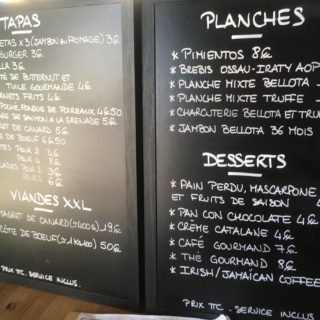 TAPAS
ETAS x3 (JAMBON OU FROMAGE) 3€
BURGER 3€
LLA 3€
TÉ DE BUTTERNUT ET
TUILE GOURMANDE 4€
ORNETS FRITS 4€
POCHÉ, FONDUE DE POIREAUX 4€50
DE SAUMON A LA GRENADE 5€
RET DE CANARD 5€
DE BOEUF 6€50
POUR 2 4€
POUR 4 8€
POUR 2 3€
POUR 6 6€
VIANDES XXL
MAGRET DE CANARD (≃400g) 19€
CÔTE DE BOEUF (≃1kg400) 50€
PRIX TTC. SERVICE INCLUS
PLANCHES
* PIMIENTOS 8€
* BREBIS OSSAU-IRATY AOP
* PLANCHE MIXTE BELLOTA
* PLANCHE MIXTE TRUFFE
* CHARCUTERIE BELLOTA ET TRU
* JAMBON BELLOTA 36 MOIS
DESSERTS
* PAIN PERDU, MASCARPONE
ET FRUITS DE SAISON
* PAN CON CHOCOLATE 4€
* CRÈME CATALANE 4€
* CAFÉ GOURMAND 7€
* THÉ GOURMAND 8€
* IRISH/JAMAÏCAN COFFEE
PRIX TTC. SERVICE INCLUS.